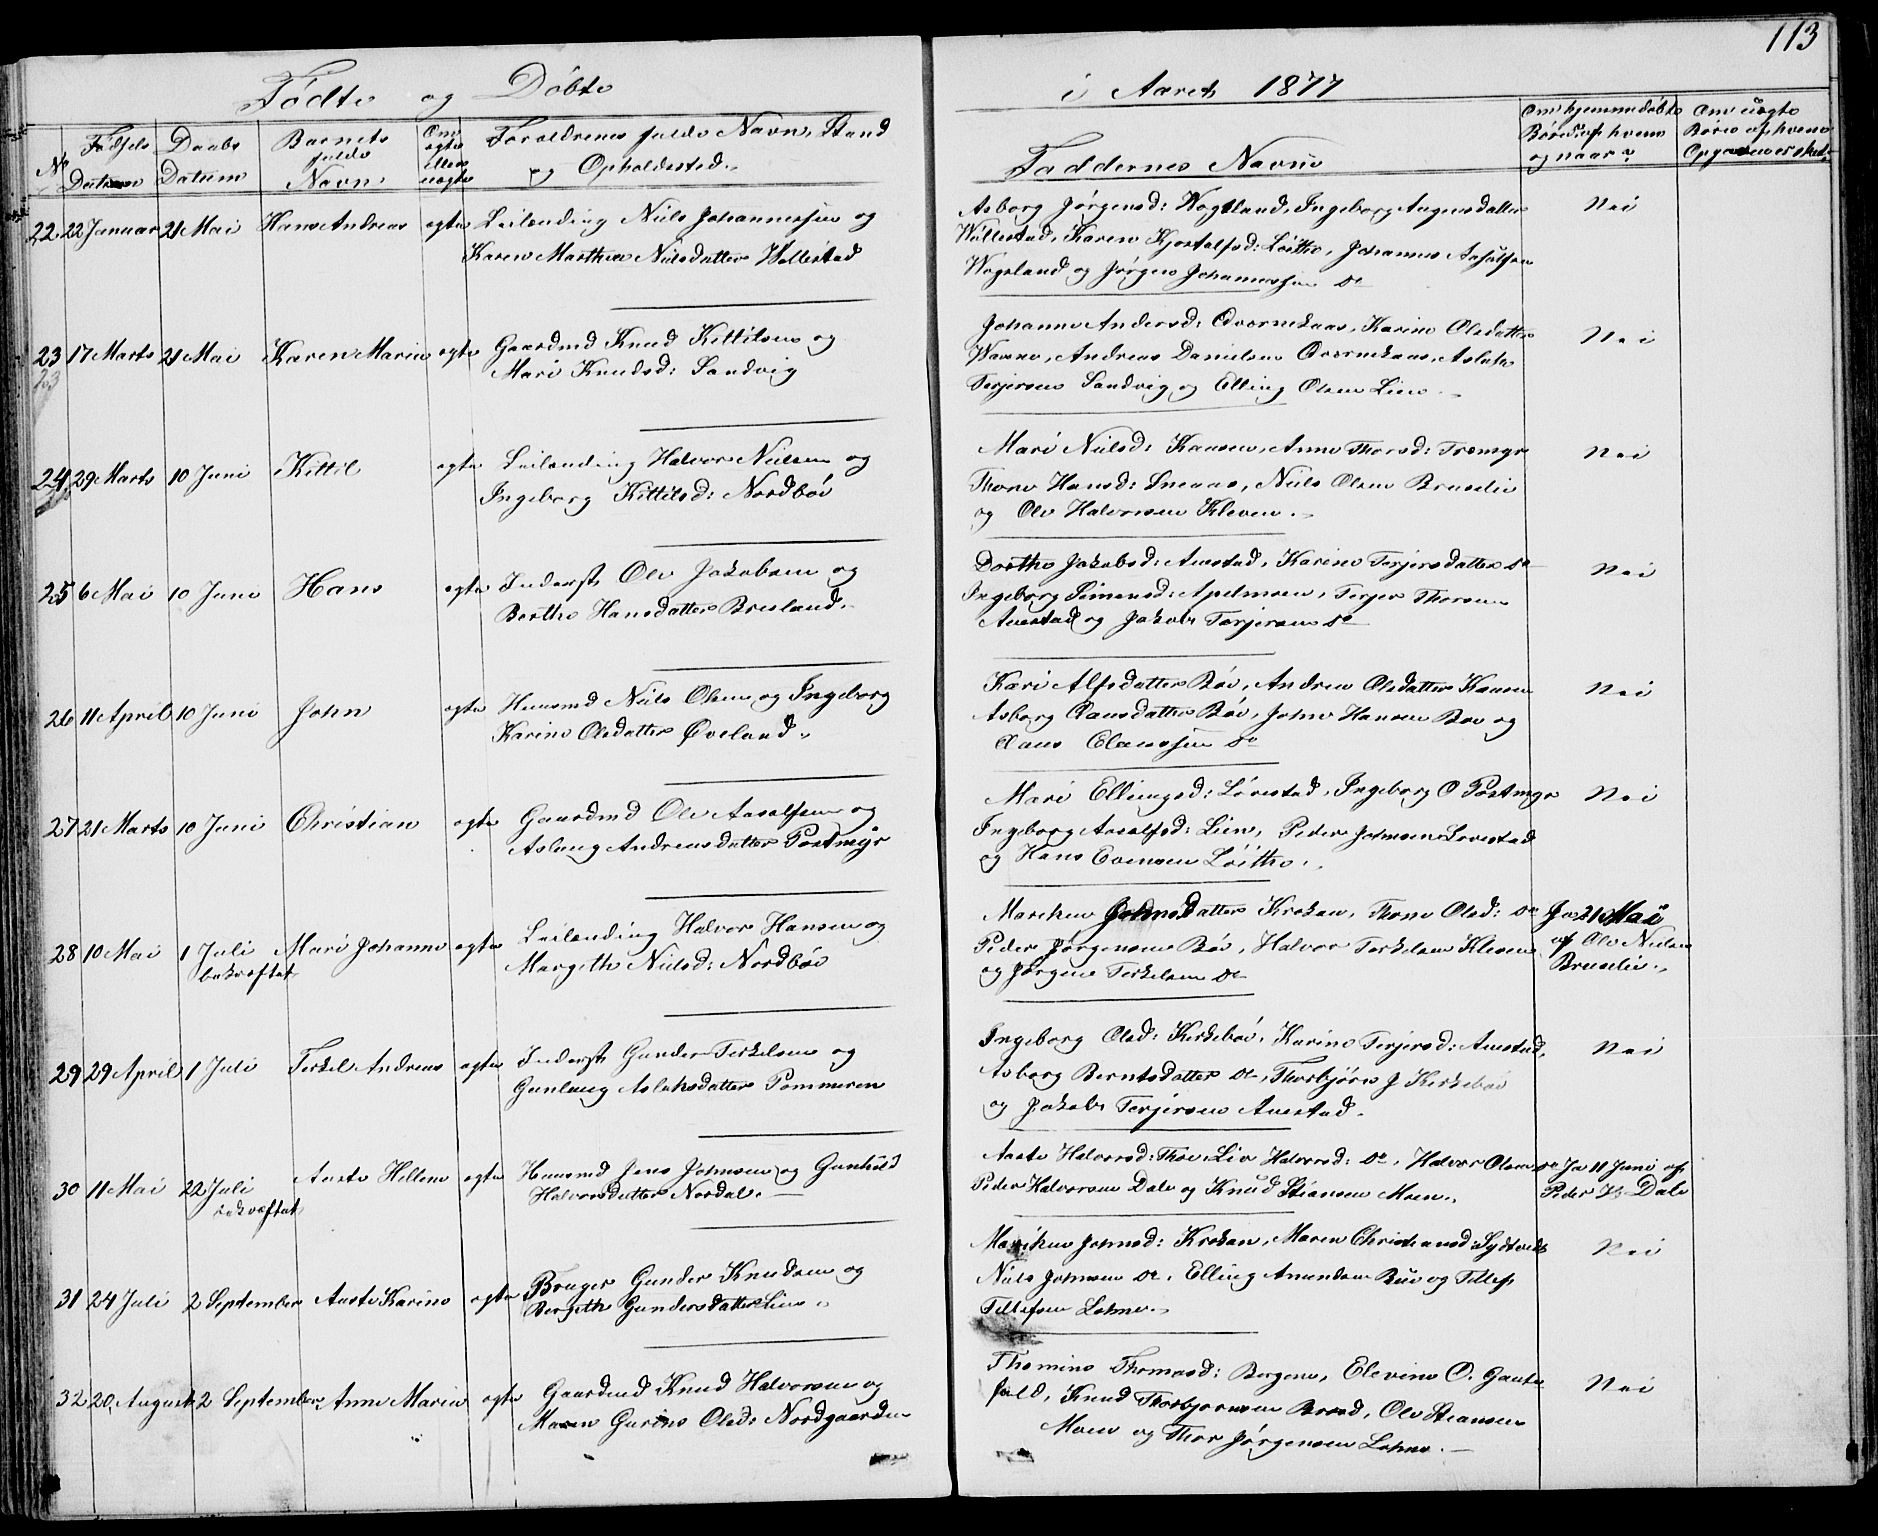 113
Födte og Döbte
i Aaret 1877
No
Födsels Datum
Daabs Datum
Barnets fulde Navn.
Om ægte eller uægte
Forældrenes fulde Navn, Stand
og Opholdssted.
Faddernes Navne
Om hjemmedöbte
Börn af hvem
og naar?
Om uægte
Börn af hvem
22 22 Januar 21 Mai Hans Andreas ægte Leilænding Niels Johannessen og
Karen Marthea Nielsdatter Wallestad
Asborg Jörgensd: Wogsland, Ingeborg Augensdatter
Wallestad, Karen Kjostolfsd: Löithe, Johannes
Wogsland og Jörgen Johannessen Do
Nei
23 17 Marts 21 Mai Karen Marie ægte Gaardmd Knud Kittilsen og
Mari Knudsd: Sandvig
23
Johanne Andersd: Qværnekaas, Karine Olsdatter
Andreas Danielsen Qværnekaas, Aslak
Terjersen Sandvig og Elling Olsen Lien.
Nei
24 29 Marts 10 Juni Kittil ægte Leilænding Halvor Nielsen og
Ingeborg Kittilsd: Nordböe
Mari Nielsd: Kaasen, Anne Thorsd: Træmyr
Thone Hansd: Sneaas, Niels Olsen Bruselie
og Ole Halvorsen Kleven.
Nei
25 6 Mai 10 Juni Hans ægte Inderst Ole Jakobsen og
Berthe Hansdatter Bresland.
Dorthe Jakobsd: Auestad, Karine Terjersdatter Do
Ingeborg Simonsd: Apelmoen, Terjer Thorsen
Auestad og Jakob Terjersen Do
Nei
26 11 April 10 Juni John ægte Huusmd Niels Olsen og Ingeborg
Karine Olsdatter Öveland.
Kari Alfsdatter Böe, Andrea Olsdatter Kaasen
Asborg Clausdatter Böe, John Hansen Böe og
Claus Claussen Do
Nei
27 21 Marts 10 Juni Christian ægte Gaardmd Ole Aasolfsen og
Aslaug Andreasdatter Postmyr
Mari Ellingsd: Lövestad, Ingeborg O Postmyr
Ingeborg Aasolfsd: Lien, Peder Johnsen Lövestad
og Hans Evensen Löithe.
Nei
28 10 Mai 1 Juli bekræftet Mari Johanne ægte Leilænding Halvor Hansen og
Margethe Nielsd: Nordböe
Mariken Johnsdatter Krokan, Thone Olsd: Do
Peder Jörgensen Böe, Halvor Terkelsen Kleven
og Jörgen Terkelsen Do
Ja 21 Mai
af Ole Nielsen
Bruselie.
29 29 April 1 Juli Terkel Andreas ægte Inderst Gunder Terkelsen og
Gunlaug Aslaksdatter Pommeren
Ingeborg Olsd: Kirkeböe, Karine Terjersd: Auestad,
Asborg Berntsdatter Do, Thorbjörn J Kirkeböe
og Jakob Terjersen Auestad.
Nei
30 11 Mai 22 Juli bekræftet Aaste Hellene ægte Huusmd Jens Johnsen og Gunhild
Halvorsdatter Nordal.
Aaste Halvorsd: Thoe, Liv Halvorsd: Do, Halvor Olsen Do
Peder Halvorsen Dale og Knud Stiansen Moen.
Ja 11 Juni af
Peder H Dale
31 24 Juli 2 September Aaste Karine ægte Bruger Gunder Knudsen og
Bergethe Gundersdatter Lien.
Mariken Johnsd: Krokan, Maren Christiansd: Sydtvedt
Niels Johnsen Do, Elling Amundsen Bue og Tellef
Tellefsen Lohne.
Nei
32 20 August 2 September Anne Marie ægte Gaardmd Knud Halvorsen og
Maren Gurine Olsd: Nordgaarden
Thomine Thomasd: Bergene, Elevine O. Gaute
fald, Knud Thorbjörnsen Brød, Ole Stiansen
Moen og Thor Jörgensen Lohne.
Nei